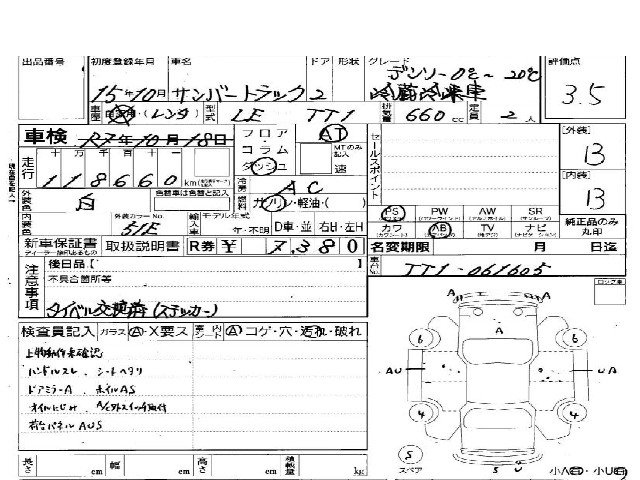 出品番号 初度登録年月 車名 ドア 形状 グレード 評価点
15年10月 サンバートラック 2 デンソー0℃~-20℃
冷蔵冷凍車 3.5
型式 LE TT1 排気量 660 cc 定員 2人
車検 R7年10月18日 フロア AT
コラム MTのみ記入
ダッシュ 速
走行 十万千百十
118660 km
セールスポイント
[外装] B
[内装] B
外装色 白 色替車は色替と記入
冷房 AC
燃料 ガソリン・軽油・( )
内装色 外装カラーNo. 51E 輸入車 モデル年式 年・不明 D車・並 右H・左H
PS PW AW SR
カワ AB TV ナビ
純正品のみ丸印
新車保証書 取扱説明書 R券 ¥ 7,380
名変期限 月 日迄
注意事項 後日品[ ]
不具合箇所等
車台No. TT1-061605
タイベル交換済(ステッカー)
ロック車
検査員記入 ガラス A・X要ス 内シート A コゲ・穴・汚れ・破れ
上物動作未確認
ハンドルスレ、シートヘタリ
ドアミラーA、ホイルAS
オイルにじみ、
荷台パネルAUS
A A
A
6 6
AU UA
4 4
5
スペア
S U
長さ cm 幅 cm 高さ cm 積載量 kg
小A・小U